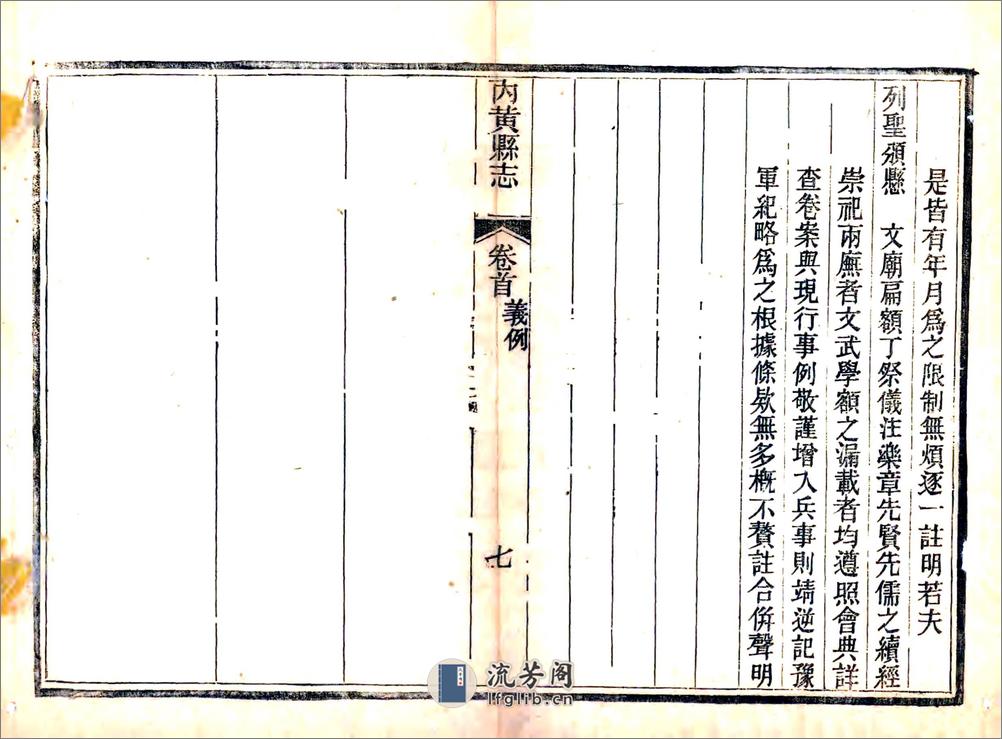 是皆有年月爲之限制無煩逐一註明若夫
列聖頒懸　文廟扁額丁祭儀注樂章先賢先儒之續經
崇祀兩廡者文武學額之漏載者均遵照會典詳
查卷案與現行事例敬謹增入兵事則靖逆記豫
軍紀略爲之根據條欵無多概不贅註合倂聲明
內黃縣志
卷首 義例
七
流芳阁
lfglib.cn